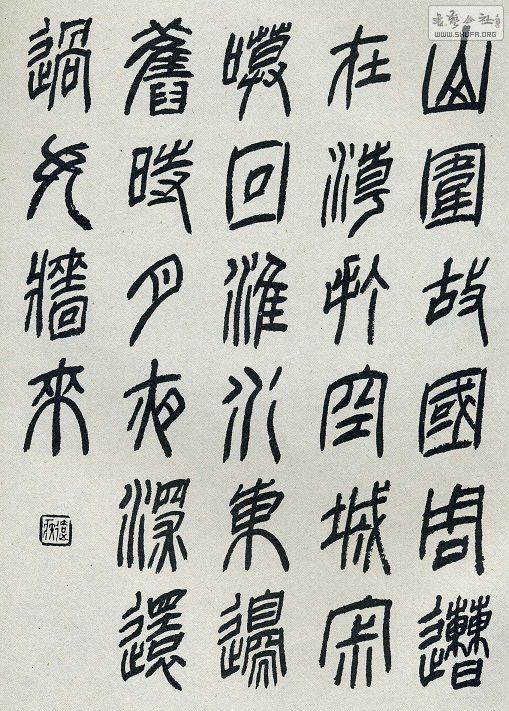 山圍故國周遭
在潮打空城寂
嗼回淮水東邊
舊時月夜深還
過女牆來
书艺公社
WWW.SHUFA.ORG